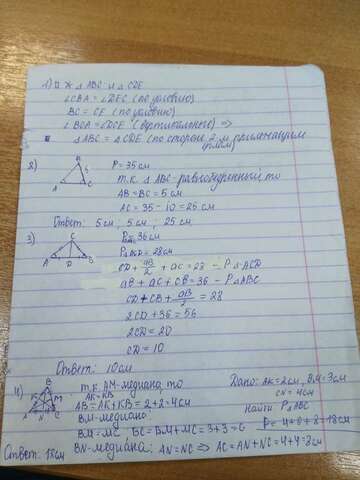 1) □ Ж △ ABC и △ CDE
∠CBA = ∠DEC (по условию)
BC = CE (по условию)
∠BCA = ∠DCE (вертикальные) ⇒
△ABC = △CDE (по стороне 2-м прилежащем углам)
2) P = 35 см
B
5
A C
т.к. △ABC - равнобедренный то
AB = BC = 5 см
AC = 35 - 10 = 25 см
Ответ: 5 см; 5 см; 25 см
3) C
A D B
P = 36 см
P ACD = 28 см
CD + AB/2 + AC = 28 - P△ACD
AB + AC + CB = 36 - P△ABC
CD + CB + AB/2 = 28
2CD + 36 = 56
2CD = 20
CD = 10
Ответ: 10 см
4) B
K M
A N C
т.к. AM-медиана то
AK = KB
AB = AK + KB = 2 + 2 = 4 см
BM-медиана:
BM = MC BC = BM + MC = 3 + 3 = 6
BN-медиана: AN = NC ⇒ AC = AN + NC = 4 + 4 = 8 см
Дано: AK = 2 см, BM = 3 см
CN = 4 см
Найти P△ABC
P = 4 + 6 + 8 = 18 см
Ответ: 18 см